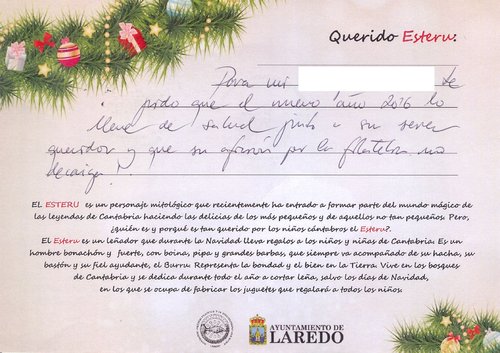 Querido Esteru:
Para mi te
pido que el nuevo año 2016 lo
llene de salud junto a sus seres
queridos y que su afición por la filatelia no
decaiga
EL ESTERU es un personaje mitológico que recientemente ha entrado a formar parte del mundo mágico de
las leyendas de Cantabria haciendo las delicias de los más pequeños y de aquellos no tan pequeños. Pero,
¿quién es y porqué es tan querido por los niños cántabros el Esteru?.
El Esteru es un leñador que durante la Navidad lleva regalos a los niños y niñas de Cantabria: Es un
hombre bonachón y fuerte, con boina, pipa y grandes barbas, que siempre va acompañado de su hacha, su
bastón y su fiel ayudante, el Burru. Representa la bondad y el bien en la Tierra. Vive en los bosques
de Cantabria y se dedica durante todo el año a cortar leña, salvo los días de Navidad,
en los que se ocupa de fabricar los juguetes que regalará a todos los niños.
AYUNTAMIENTO DE
LAREDO